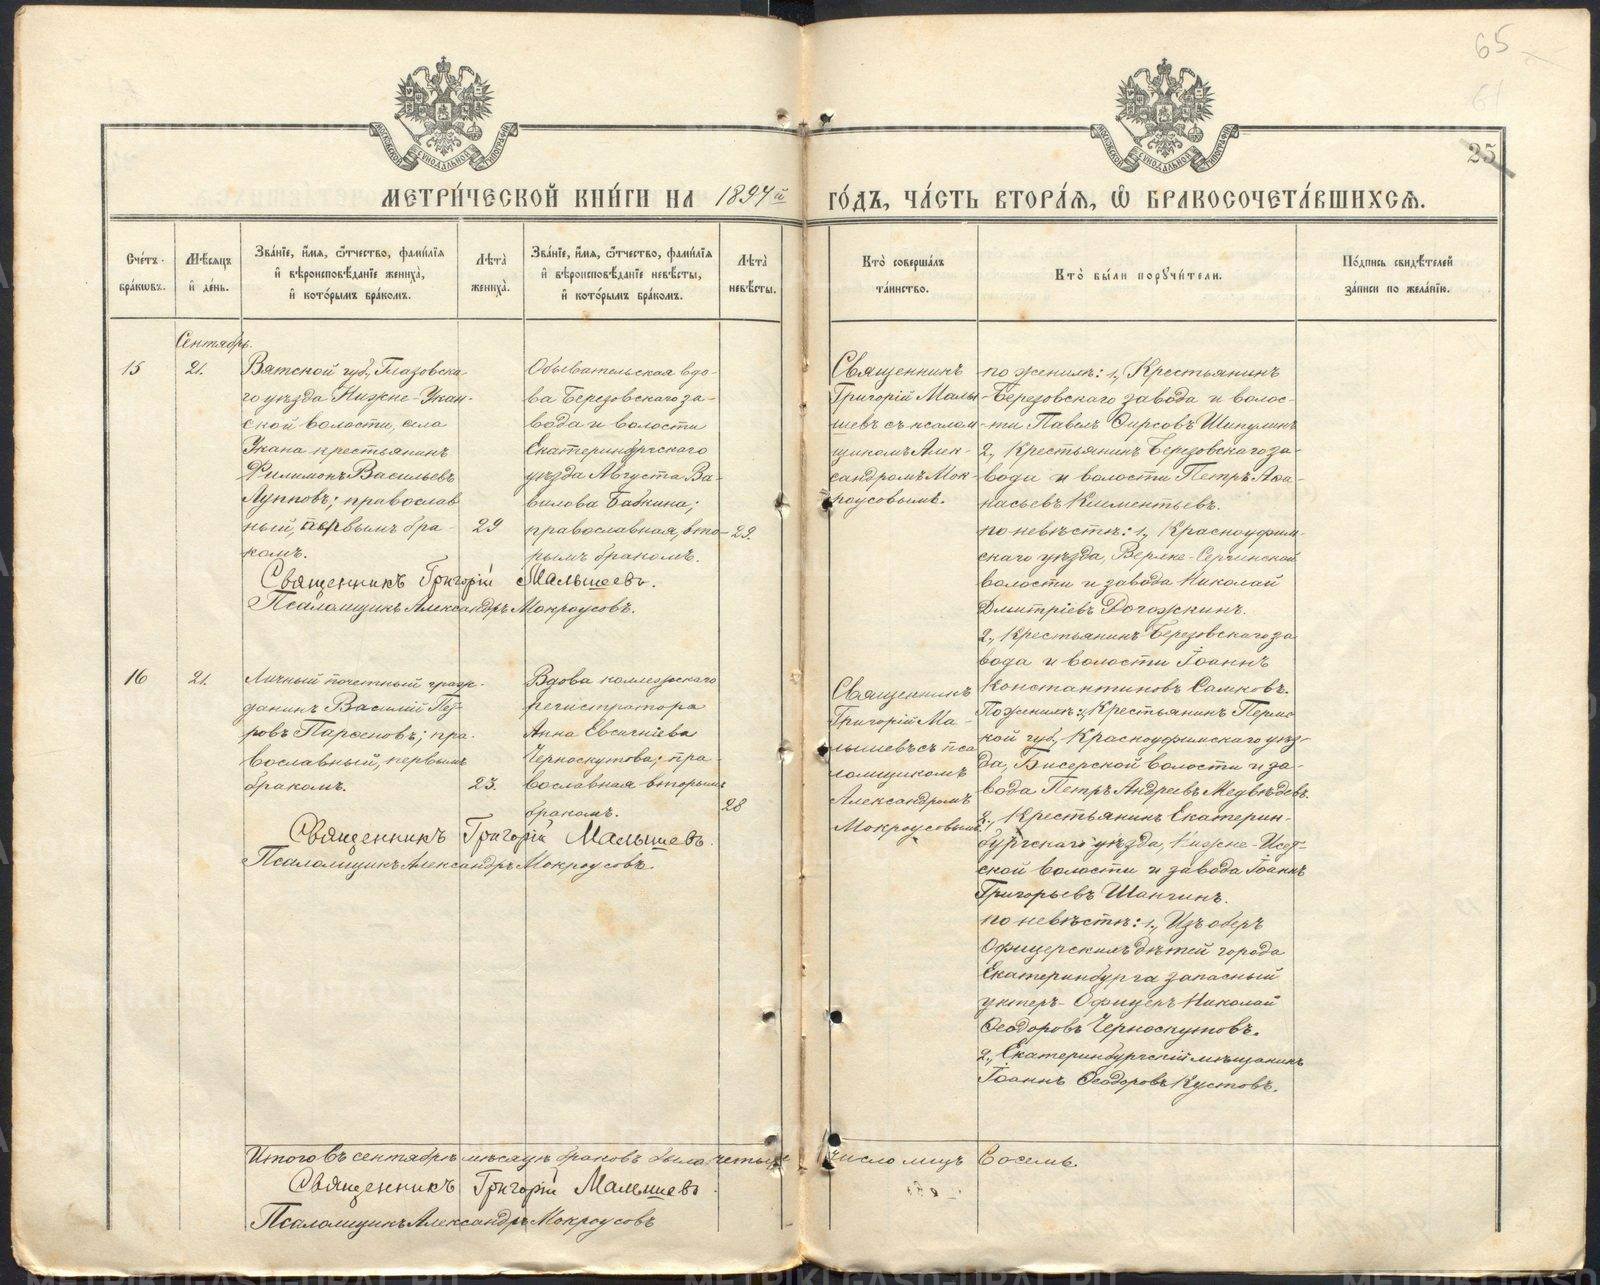 65
61
25
МОСКОВСКОЙ СУНОДАЛЬНОЙ ТИПОГРАФІИ
МОСКОВСКОЙ СУНОДАЛЬНОЙ ТИПОГРАФІИ
МЕТРИ́ЧЕСКОЙ КНИ́ГИ НА 1894й ГО́ДЪ, ЧА́СТЬ ВТОРА́Ѧ, Ѽ БРАКОСОЧЕТА́ВШИХСѦ.
Сче́тъ браковъ.
Мѣсяцъ и де́нь.
Зва́нїе, и́мя, ѻ́тчество, фами́лїя и вѣроисповѣ́данїе жениха̀, и кото́рымъ бра́комъ.
Лѣта̀ жениха̀.
Зва́нїе, и́мя, ѻ́тчество, фами́лїя и вѣроисповѣ́данїе невѣ́сты, и кото́рымъ бра́комъ.
Лѣта̀ невѣ́сты.
Кто̀ соверша́лъ та́инство.
Кто̀ бы́ли поручи́тели.
По́дпись свидѣ́телей за́писи по жела́нїю.
Сентябрь.
15
21.
Вятской губ., Глазовска-
го уѣзда Нижне-Укан-
ской волости, села
Укана крестьянинъ
Филимонъ Васильевъ
Лупповъ; православ
ный, первымъ бра-
комъ.
29
Обывательская вдо-
ва Березовскаго за-
вода и волости
Екатеринбургскаго
уѣзда Августа Ва-
вилова Бабкина;
православная, вто-
рымъ бракомъ.
29.
Священникъ Григорій Малышевъ.
Псаломщикъ Александръ Мокроусовъ.
Священникъ
Григорій Малы
шевъ съ псалом-
щикомъ Алек-
сандромъ Мок-
роусовымъ.
по женихѣ: 1., Крестьянинъ
Березовскаго завода и волос-
ти Павелъ Фирсовъ Шипулинъ
2., Крестьянинъ Березовскаго за-
вода и волости Петръ Афа-
насьевъ Клементьевъ.
по невѣстѣ: 1., Красноуфим-
скаго уѣзда, Верхне-Сергинской
волости и завода Николай
Дмитріевъ Рогожкинъ.
2., Крестьянинъ Березовскаго за
вода и волости Іоаннъ
Константиновъ Самковъ.
16
21.
Личный почетный граж-
данинъ Василій Пет-
ровъ Парѳеновъ; пра-
вославный, первымъ
бракомъ.
23.
Вдова коллежскаго
регистратора
Анна Евсигніева
Черноскутова; пра-
вославная вторымъ
бракомъ.
28
Священникъ Григорій Малышевъ.
Псаломщикъ Александръ Мокроусовъ.
Священникъ
Григорій Ма-
лышевъ съ пса
ломщикомъ
Александромъ
Мокроусовымъ.
По женихѣ: 1., Крестьянинъ Перм-
кой губ., Красноуфимскаго уѣз-
да, Бисерской волости и за-
вода Петръ Андреевъ Медвѣдевъ.
2., Крестьянинъ Екатерин-
бургскаго уѣзда, Нижне-Исет-
ской волости и завода Іоаннъ
Григорьевъ Шангинъ.
по невѣстѣ: 1., Изъ оберъ
Офицерскихъ дѣтей города
Екатеринбурга запасный
унтеръ-Офицеръ Николай
Ѳеодоровъ Черноскутовъ.
2., Екатеринбургскій мѣщанинъ
Іоаннъ Ѳеодоровъ Кустовъ.
Итого въ сентябрѣ мѣсяцѣ браковъ было четыре
число лицъ Восемь.
Священникъ Григорій Малышевъ.
Псаломщикъ Александръ Мокроусовъ